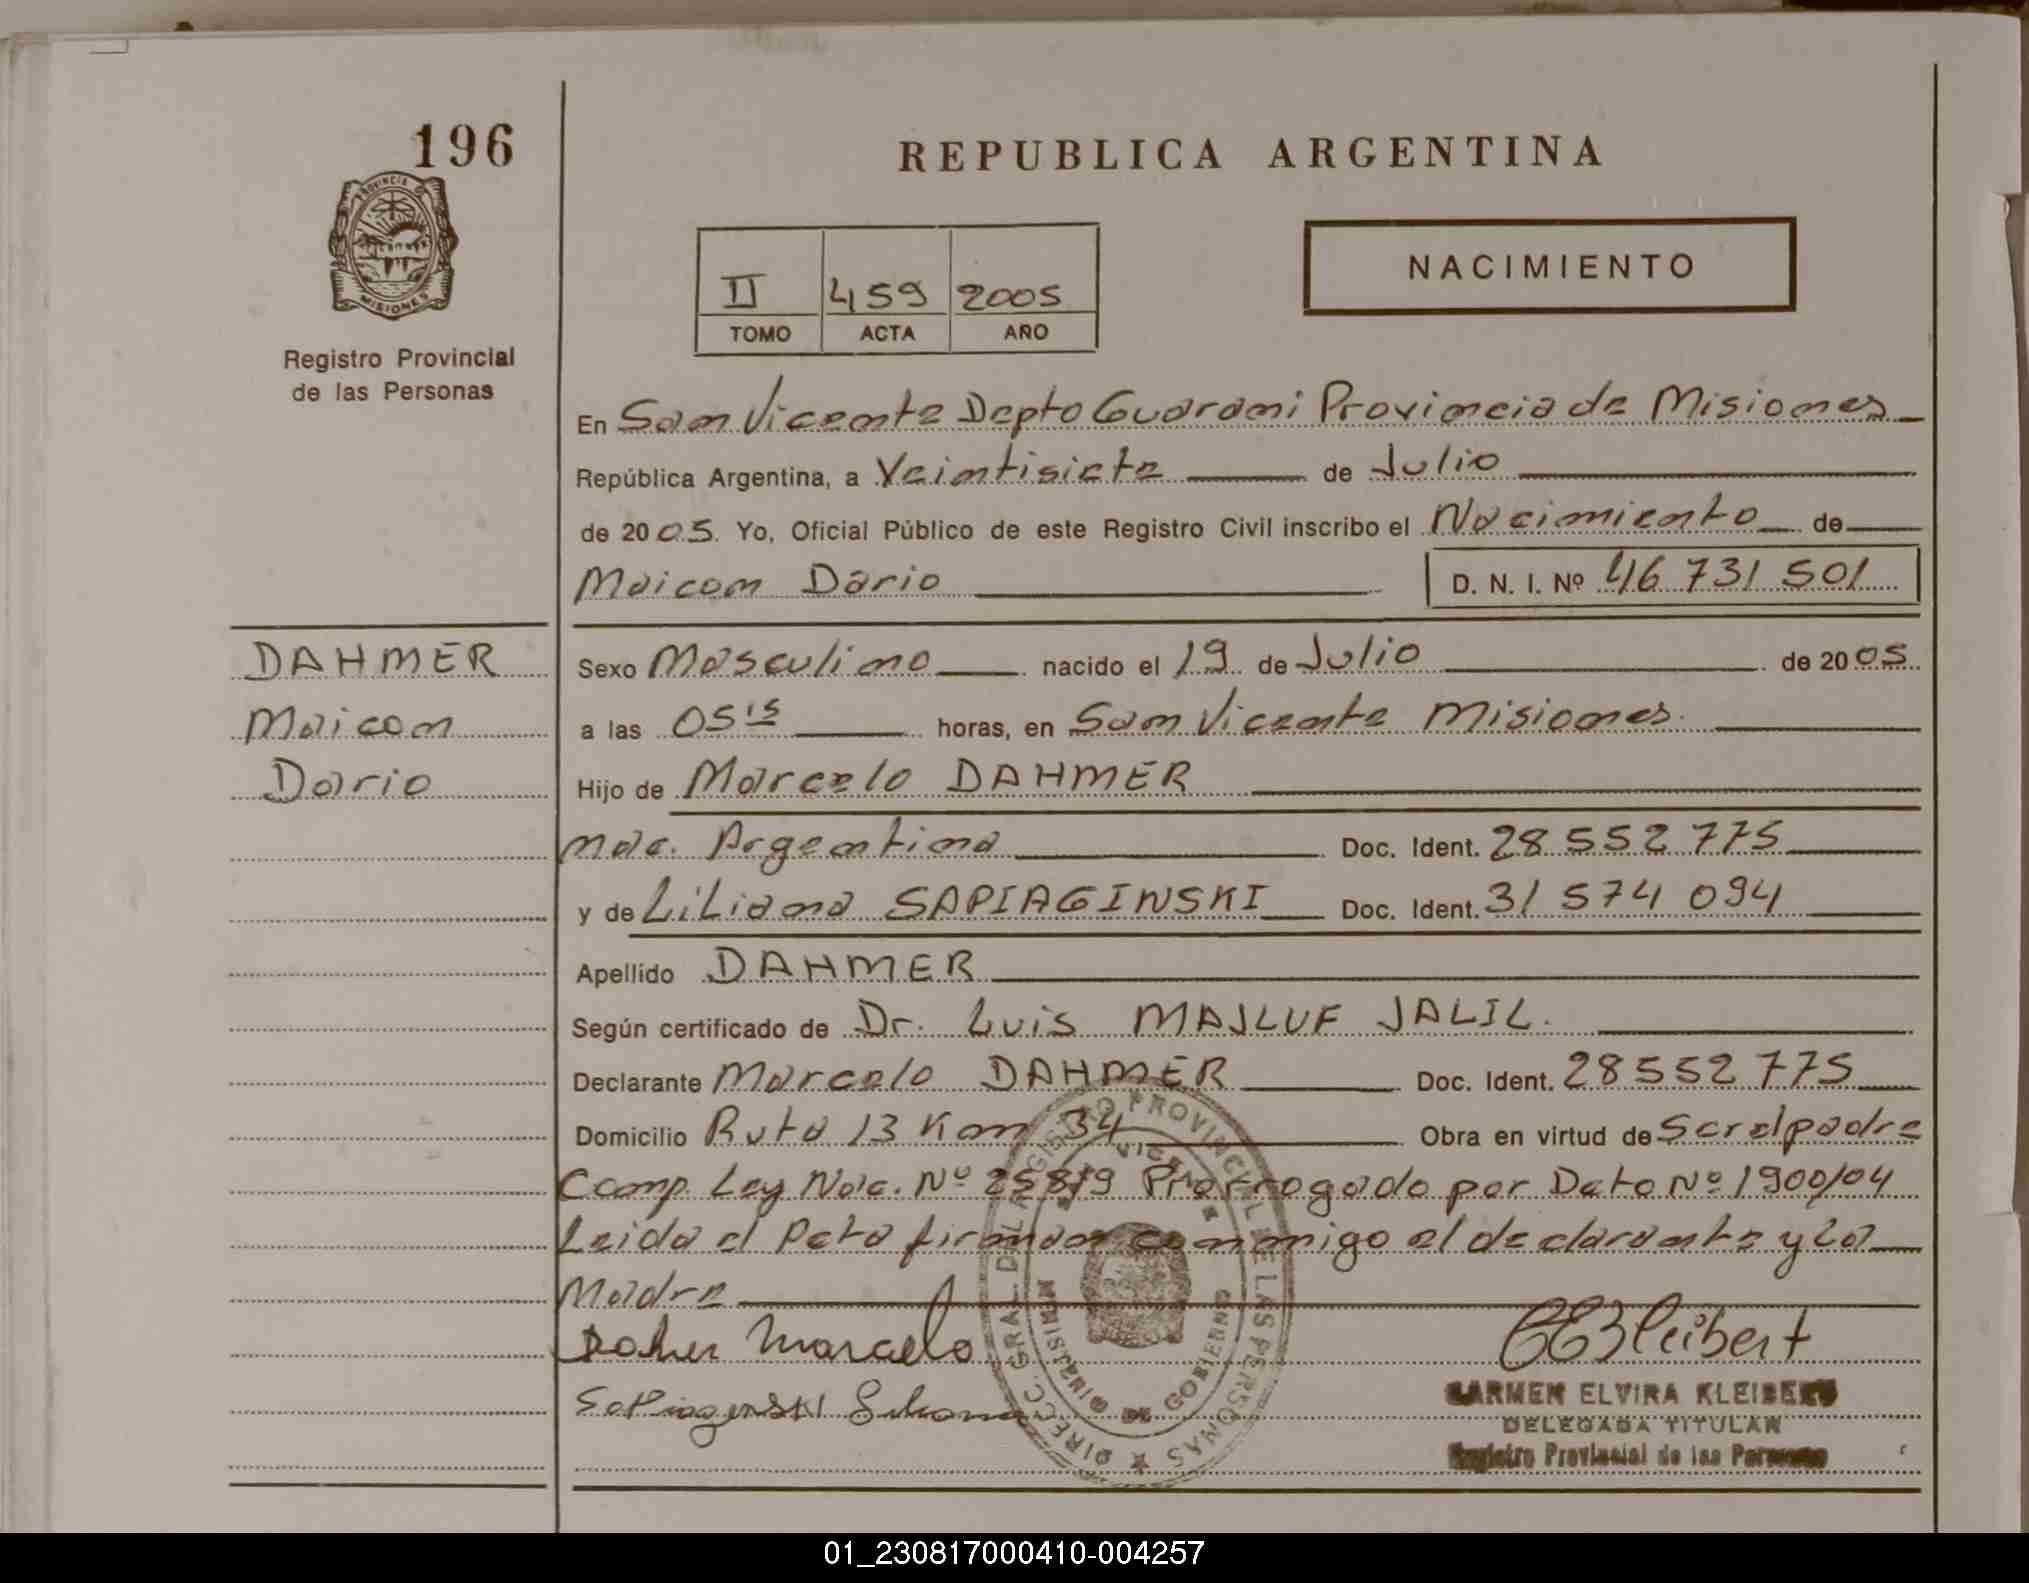 196
PROVINCIA D
MISIONES
Registro Provincial
de las Personas
REPUBLICA ARGENTINA
II 459 2005
TOMO ACTA AÑO
NACIMIENTO
En San Vicente Depto Guarani Provincia de Misiones
República Argentina, a Veintisiete de Julio
de 2005. Yo, Oficial Público de este Registro Civil inscribo el Nacimiento de
Maicon Dario D. N. I. Nº 46 731 501
DAHMER
Maicon
Dario
Sexo Masculino nacido el 19 de Julio de 2005
a las 05 15 horas, en San Vicente Misiones.
Hijo de Marcelo DAHMER
nac. Argentina Doc. Ident. 28 552 775
y de Liliana SAPIAGINSKI Doc. Ident. 31 574 094
Apellido DAHMER
Según certificado de Dr. Luis MAJLUF JALIL.
Declarante Marcelo DAHMER Doc. Ident. 28 552 775
Domicilio Ruta 13 Km 34 Obra en virtud de Ser el padre
Comp. Ley Nac. Nº 25819 Prorrogado por Dcto Nº 1900/04
Leida el Acta firman conmigo el declarante y la
Madre
Marcelo
CEKleibert
Sapiaginski Liliana
DIRECC. GRAL. DEL REGISTRO PROVINCIAL DE LAS PERSONAS
VICENTE
MINISTERIO DE GOBIERNO
CARMEN ELVIRA KLEIBERT
DELEGADA TITULAR
Registro Provincial de las Personas
01_230817000410-004257